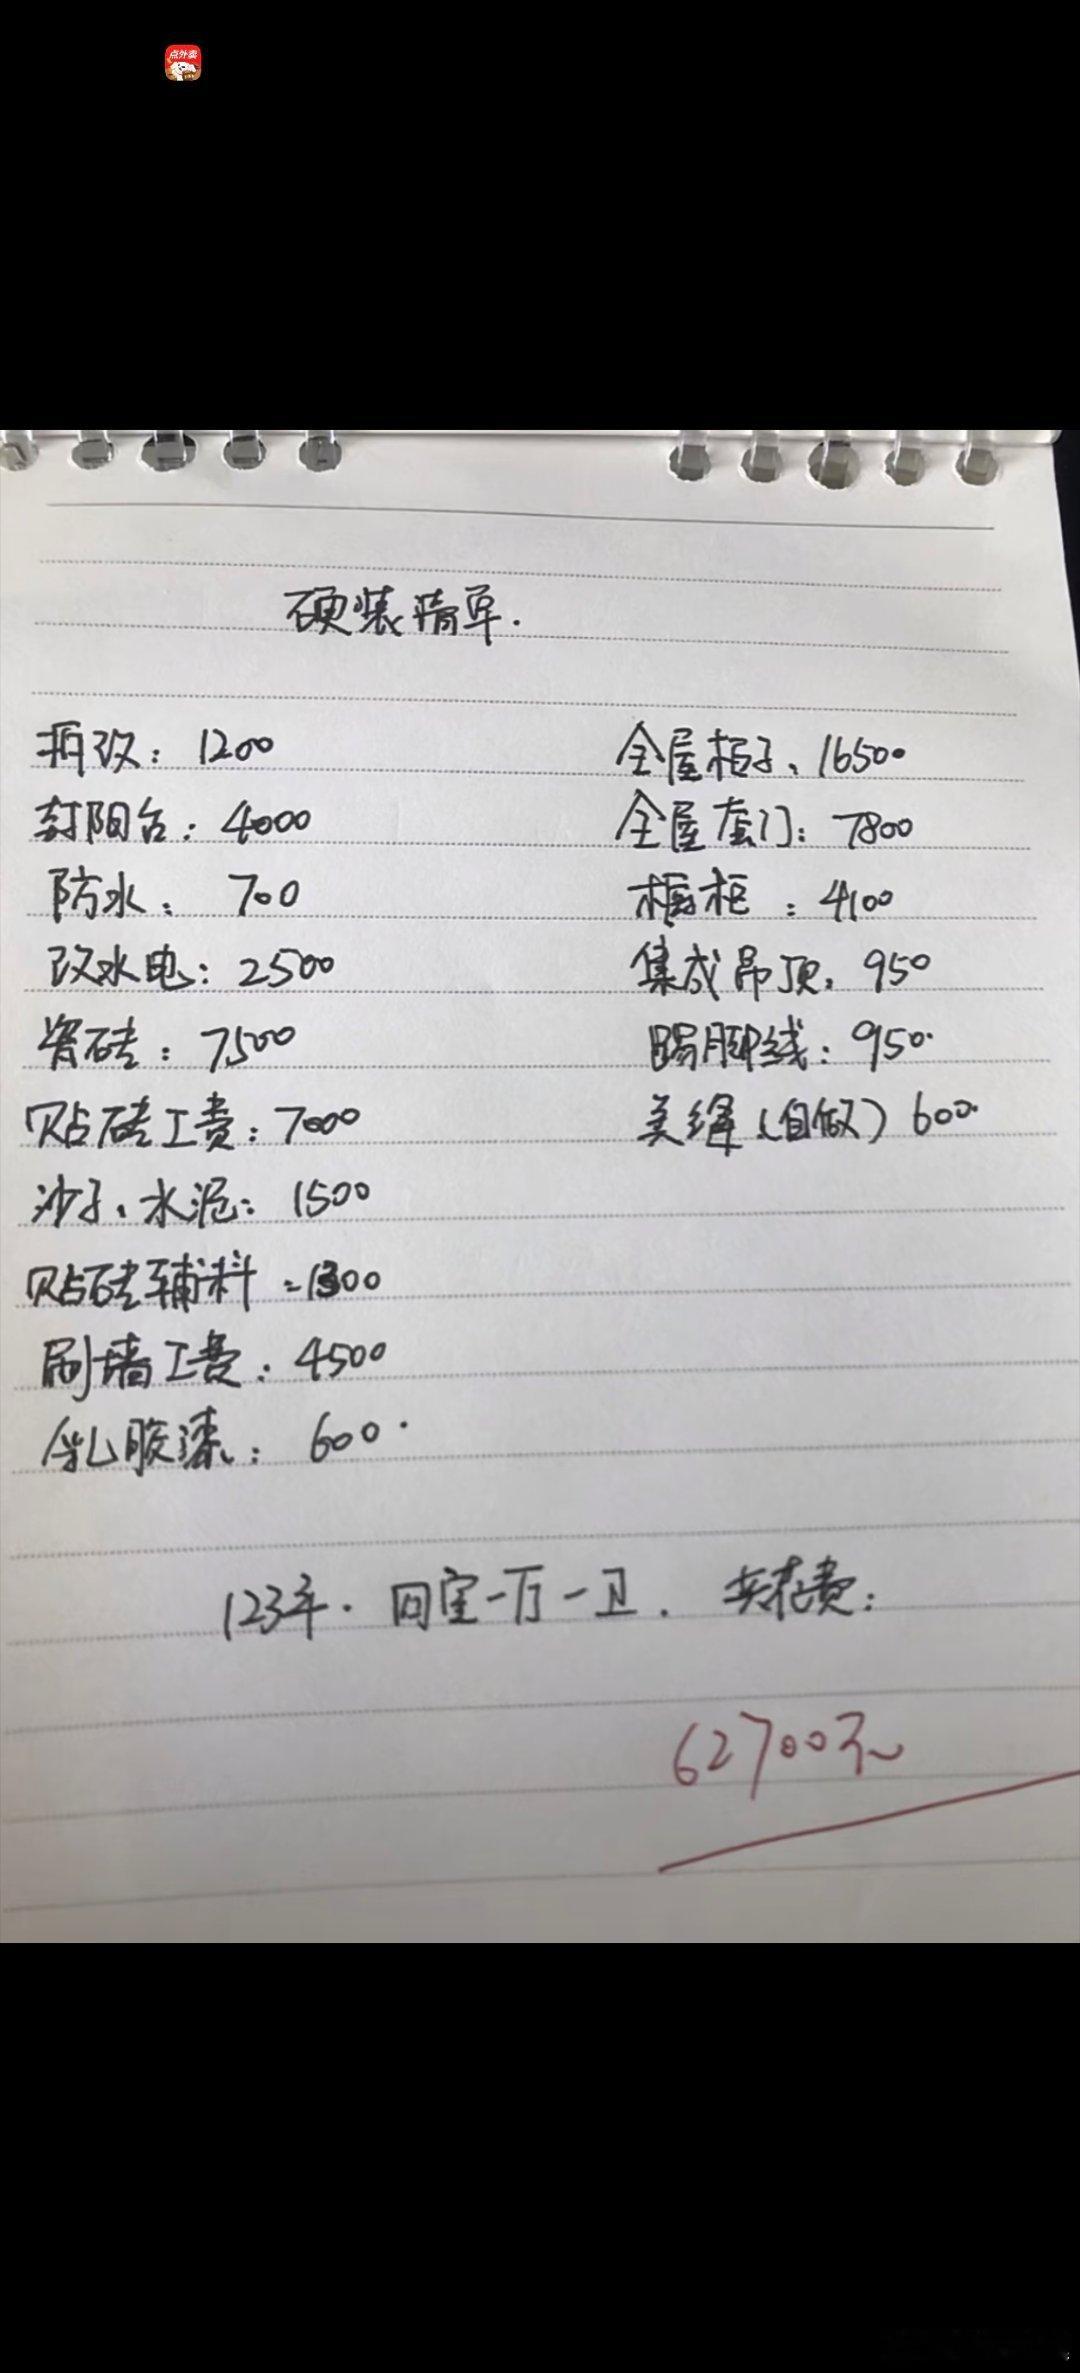 点外卖
硬装清单.
拆改：1200
封阳台：4000
防水：700
改水电：2500
瓷砖：7500
贴砖工费：7000
沙子、水泥：1500
贴砖辅料：1300
刷墙工费：4500
乳胶漆：600.
全屋柜子、16500
全屋套门：7800
橱柜：4100
集成吊顶：950
踢脚线：950.
美缝（自做）600.
123平. 四室一厅一卫. 共花费：
62700元